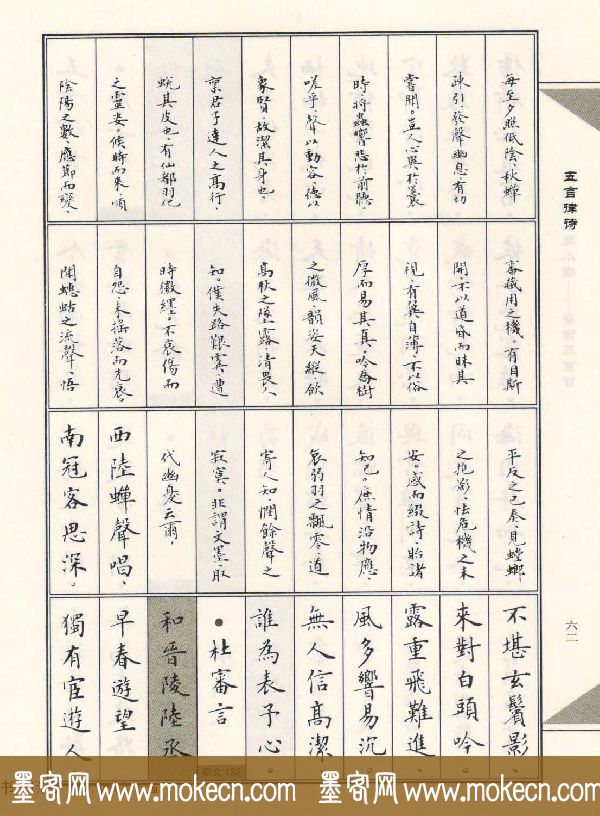 五言律诗
每至夕照低陰、秋蟬
疎引、發聲幽息、有切
嘗聞。豈人心異於曩
時、將蟲響悲於前聽、
嗟乎、聲以動容、德以
象賢、故潔其身也、
稟君子達人之高行、
蛻其皮也、有仙都羽化
之靈姿。候時而來、順
陰陽之數、應節而變、
審藏用之機。有目斯
開、不以道昏而昧其
視、有翼自薄、不以俗
厚而易其真、吟喬樹
之微風、韻姿天縱、飲
高秋之墜露、清畏人
知。僕失路艱虞、遭
時徽纆。不哀傷而
自怨、未搖落而先衰。
聞蟪蛄之流聲、悟
平反之已奏、見螳螂
之抱影、怯危機之未
安。感而綴詩、貽諸
知己。庶情沿物應、
哀弱羽之飄零、道
寄人知、憫餘聲之
寂寞。非謂文墨、取
代幽憂云爾。
西陸蟬聲唱、
南冠客思深。
不堪玄鬢影、
來對白頭吟。
露重飛難進、
風多響易沉。
無人信高潔、
誰為表予心。
●杜審言
和晉陵陸丞
早春遊望
獨有宦遊人
六二
墨客网 www.mokecn.com 墨客网 www.mokecn.com